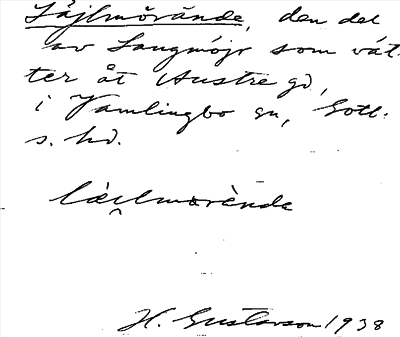 Låjlmōrände, den del
av Langmöjr som vät-
ter åt Austre gd,
i Vamlingbo sn, Gotl.
s. hd.
lài̯lmorànde
H. Gustavson 1938